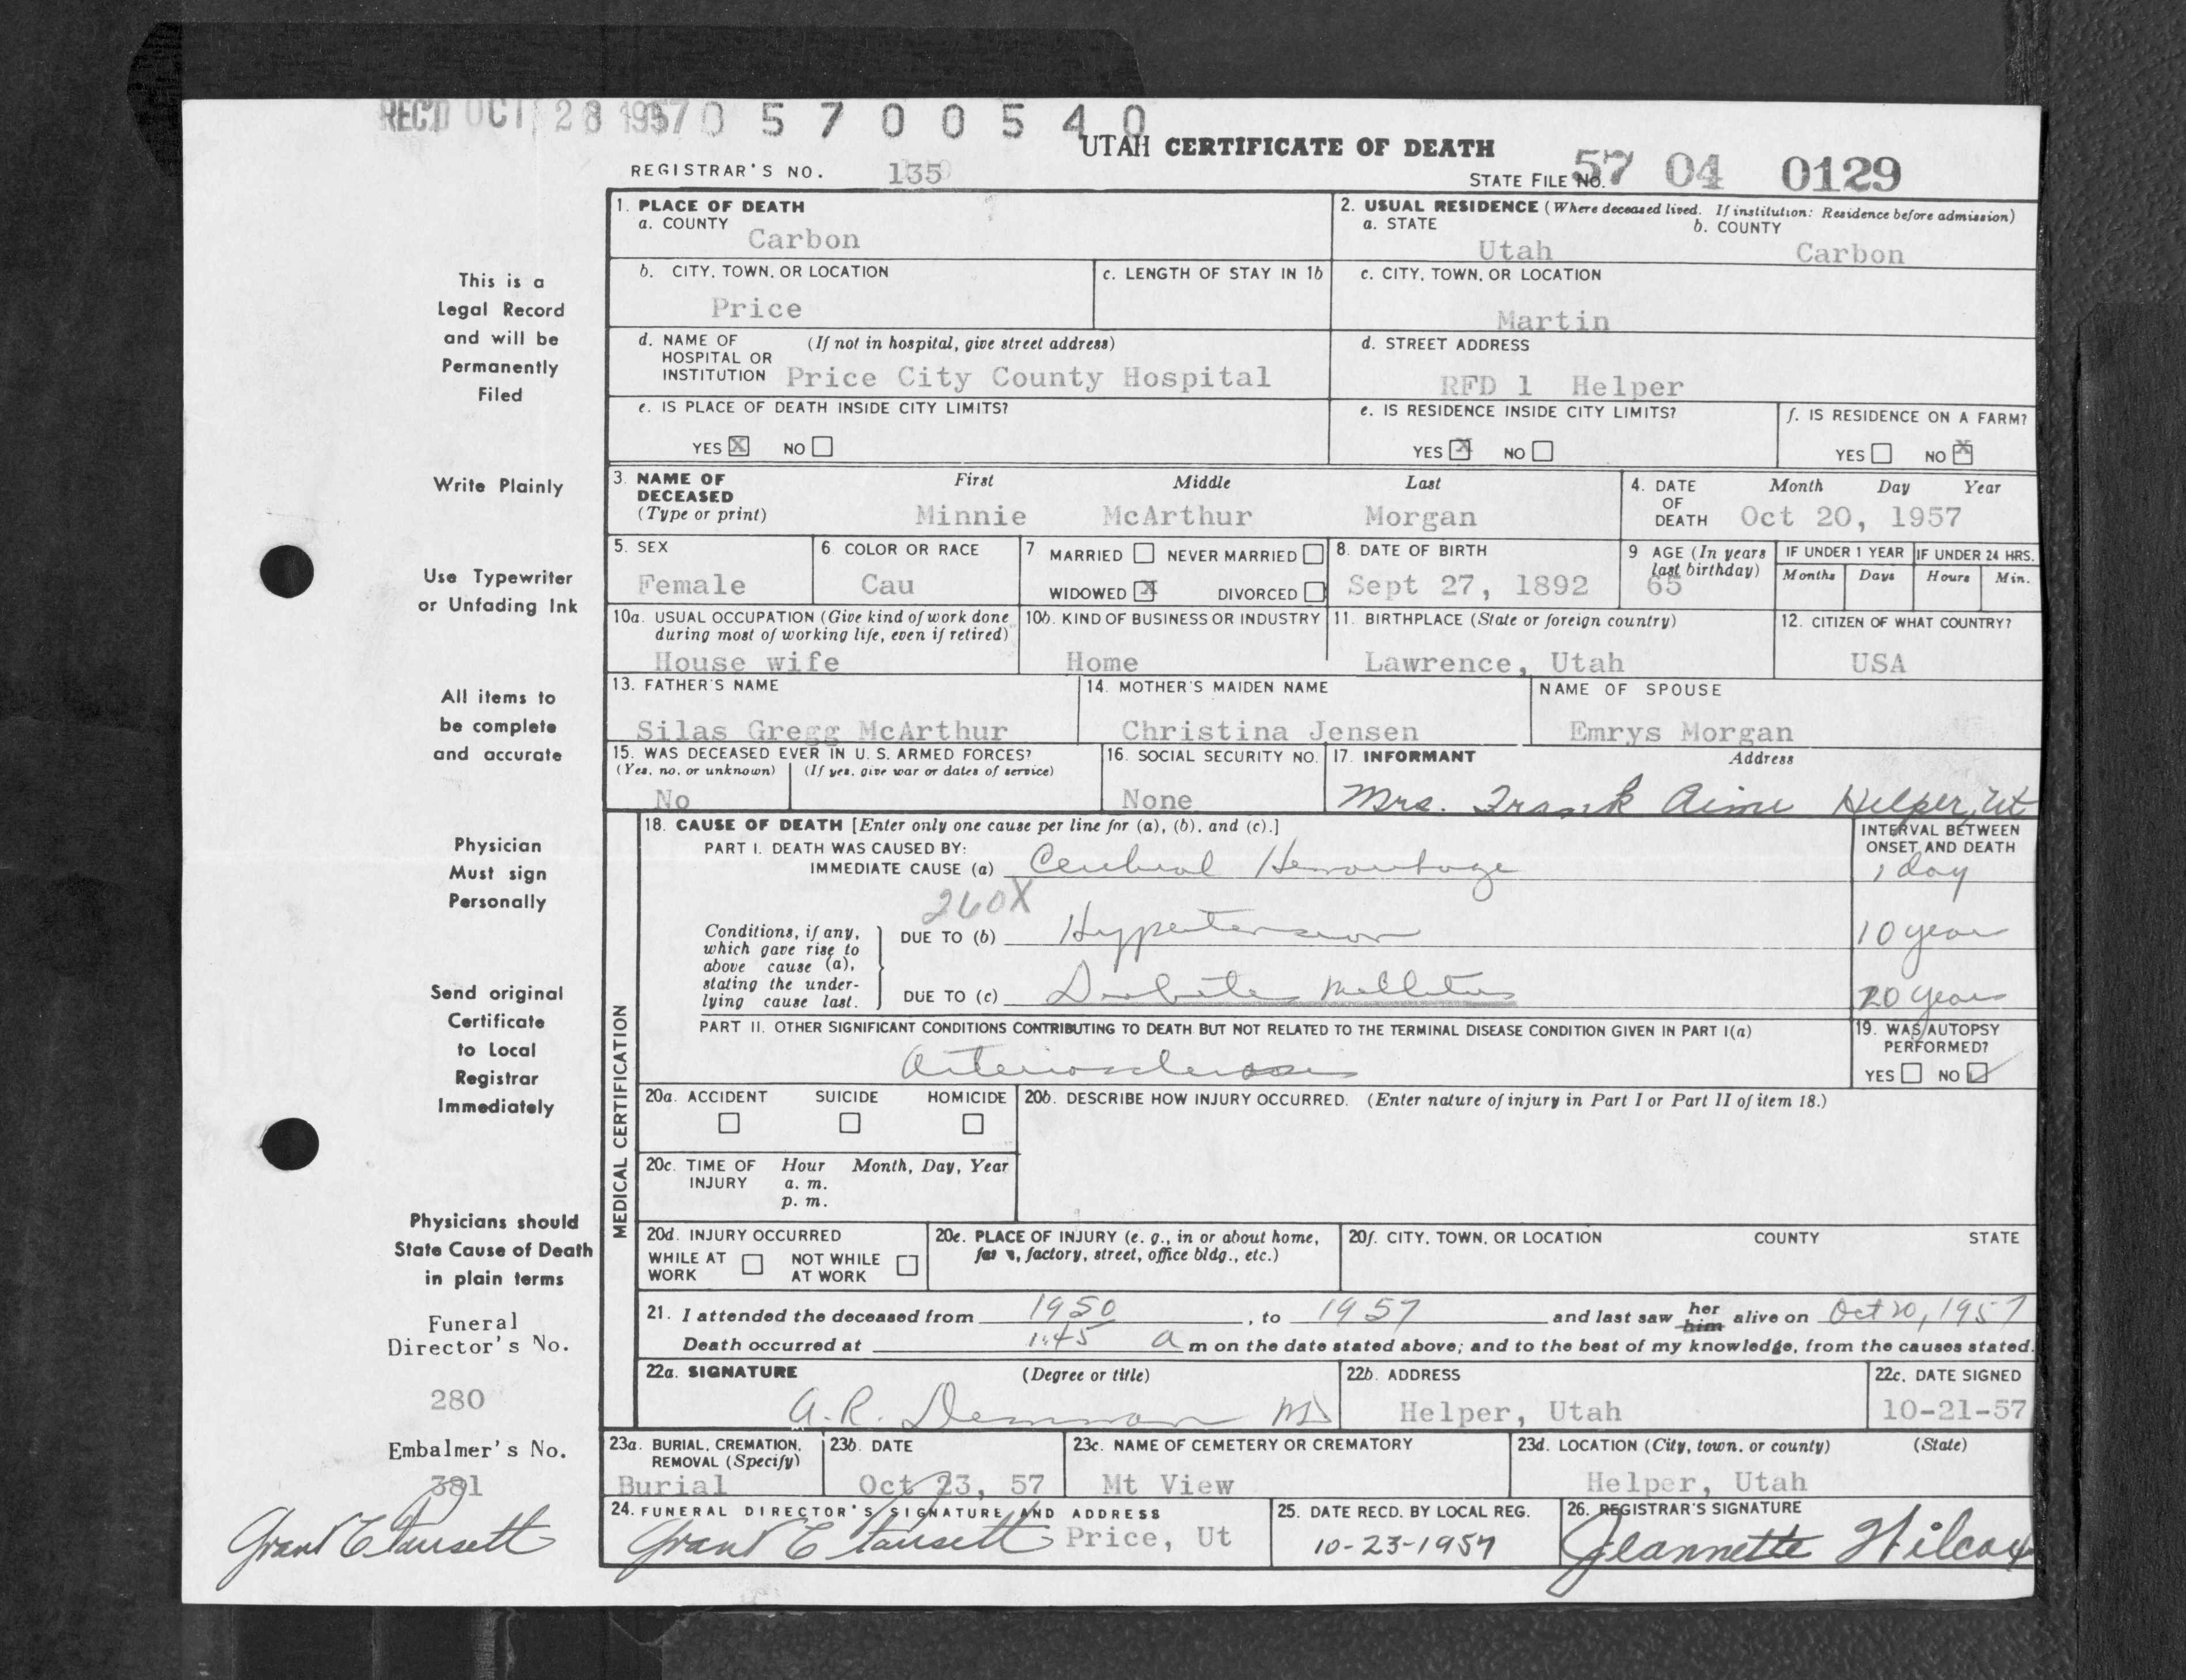 REC'D OCT 28 1957 0 5 7 0 0 5 4 0
UTAH CERTIFICATE OF DEATH
REGISTRAR'S NO. 135
STATE FILE NO. 57 04 0129
1. PLACE OF DEATH
a. COUNTY
Carbon
2. USUAL RESIDENCE (Where deceased lived. If institution: Residence before admission)
a. STATE b. COUNTY
Utah Carbon
b. CITY, TOWN, OR LOCATION
Price
c. LENGTH OF STAY IN 1b
c. CITY, TOWN, OR LOCATION
Martin
d. NAME OF (If not in hospital, give street address)
HOSPITAL OR
INSTITUTION Price City County Hospital
d. STREET ADDRESS
RFD 1 Helper
e. IS PLACE OF DEATH INSIDE CITY LIMITS?
YES X NO
e. IS RESIDENCE INSIDE CITY LIMITS?
YES X NO
f. IS RESIDENCE ON A FARM?
YES NO X
3. NAME OF
DECEASED
(Type or print)
First Middle Last
Minnie McArthur Morgan
4. DATE
OF
DEATH
Month Day Year
Oct 20, 1957
5. SEX
Female
6. COLOR OR RACE
Cau
7 MARRIED NEVER MARRIED
WIDOWED X DIVORCED
8. DATE OF BIRTH
Sept 27, 1892
9 AGE (In years
last birthday)
65
IF UNDER 1 YEAR IF UNDER 24 HRS.
Months Days Hours Min.
10a. USUAL OCCUPATION (Give kind of work done
during most of working life, even if retired)
House wife
10b. KIND OF BUSINESS OR INDUSTRY
Home
11. BIRTHPLACE (State or foreign country)
Lawrence, Utah
12. CITIZEN OF WHAT COUNTRY?
USA
13. FATHER'S NAME
Silas Gregg McArthur
14. MOTHER'S MAIDEN NAME
Christina Jensen
NAME OF SPOUSE
Emrys Morgan
15. WAS DECEASED EVER IN U. S. ARMED FORCES?
(Yes, no, or unknown) (If yes, give war or dates of service)
No
16. SOCIAL SECURITY NO.
None
17. INFORMANT Address
Mrs. Frank Aimi Helper, Ut
18. CAUSE OF DEATH [Enter only one cause per line for (a), (b), and (c).]
PART I. DEATH WAS CAUSED BY:
IMMEDIATE CAUSE (a) Cerebral Hemorrhage
INTERVAL BETWEEN
ONSET AND DEATH
1 day
260X
Conditions, if any,
which gave rise to
above cause (a),
stating the under-
lying cause last.
DUE TO (b) Hypertension
10 years
DUE TO (c) Diabetes Mellitus
20 years
PART II. OTHER SIGNIFICANT CONDITIONS CONTRIBUTING TO DEATH BUT NOT RELATED TO THE TERMINAL DISEASE CONDITION GIVEN IN PART I(a)
Arteriosclerosis
19. WAS AUTOPSY
PERFORMED?
YES NO ✓
MEDICAL CERTIFICATION
20a. ACCIDENT SUICIDE HOMICIDE
20b. DESCRIBE HOW INJURY OCCURRED. (Enter nature of injury in Part I or Part II of item 18.)
20c. TIME OF Hour Month, Day, Year
INJURY a. m.
p. m.
20d. INJURY OCCURRED
WHILE AT NOT WHILE
WORK AT WORK
20e. PLACE OF INJURY (e. g., in or about home,
farm, factory, street, office bldg., etc.)
20f. CITY, TOWN, OR LOCATION COUNTY STATE
21. I attended the deceased from 1950, to 1957 and last saw her him alive on Oct 20, 1957
Death occurred at 1:45 a m on the date stated above; and to the best of my knowledge, from the causes stated.
22a. SIGNATURE (Degree or title)
A. R. Demman MD
22b. ADDRESS
Helper, Utah
22c. DATE SIGNED
10-21-57
23a. BURIAL, CREMATION,
REMOVAL (Specify)
Burial
23b. DATE
Oct 23, 57
23c. NAME OF CEMETERY OR CREMATORY
Mt View
23d. LOCATION (City, town, or county) (State)
Helper, Utah
24. FUNERAL DIRECTOR'S SIGNATURE AND ADDRESS
Grant C Fausett Price, Ut
25. DATE RECD. BY LOCAL REG.
10-23-1957
26. REGISTRAR'S SIGNATURE
Jeannette Wilcox
This is a
Legal Record
and will be
Permanently
Filed
Write Plainly
Use Typewriter
or Unfading Ink
All items to
be complete
and accurate
Physician
Must sign
Personally
Send original
Certificate
to Local
Registrar
Immediately
Physicians should
State Cause of Death
in plain terms
Funeral
Director's No.
280
Embalmer's No.
381
Grant C Fausett